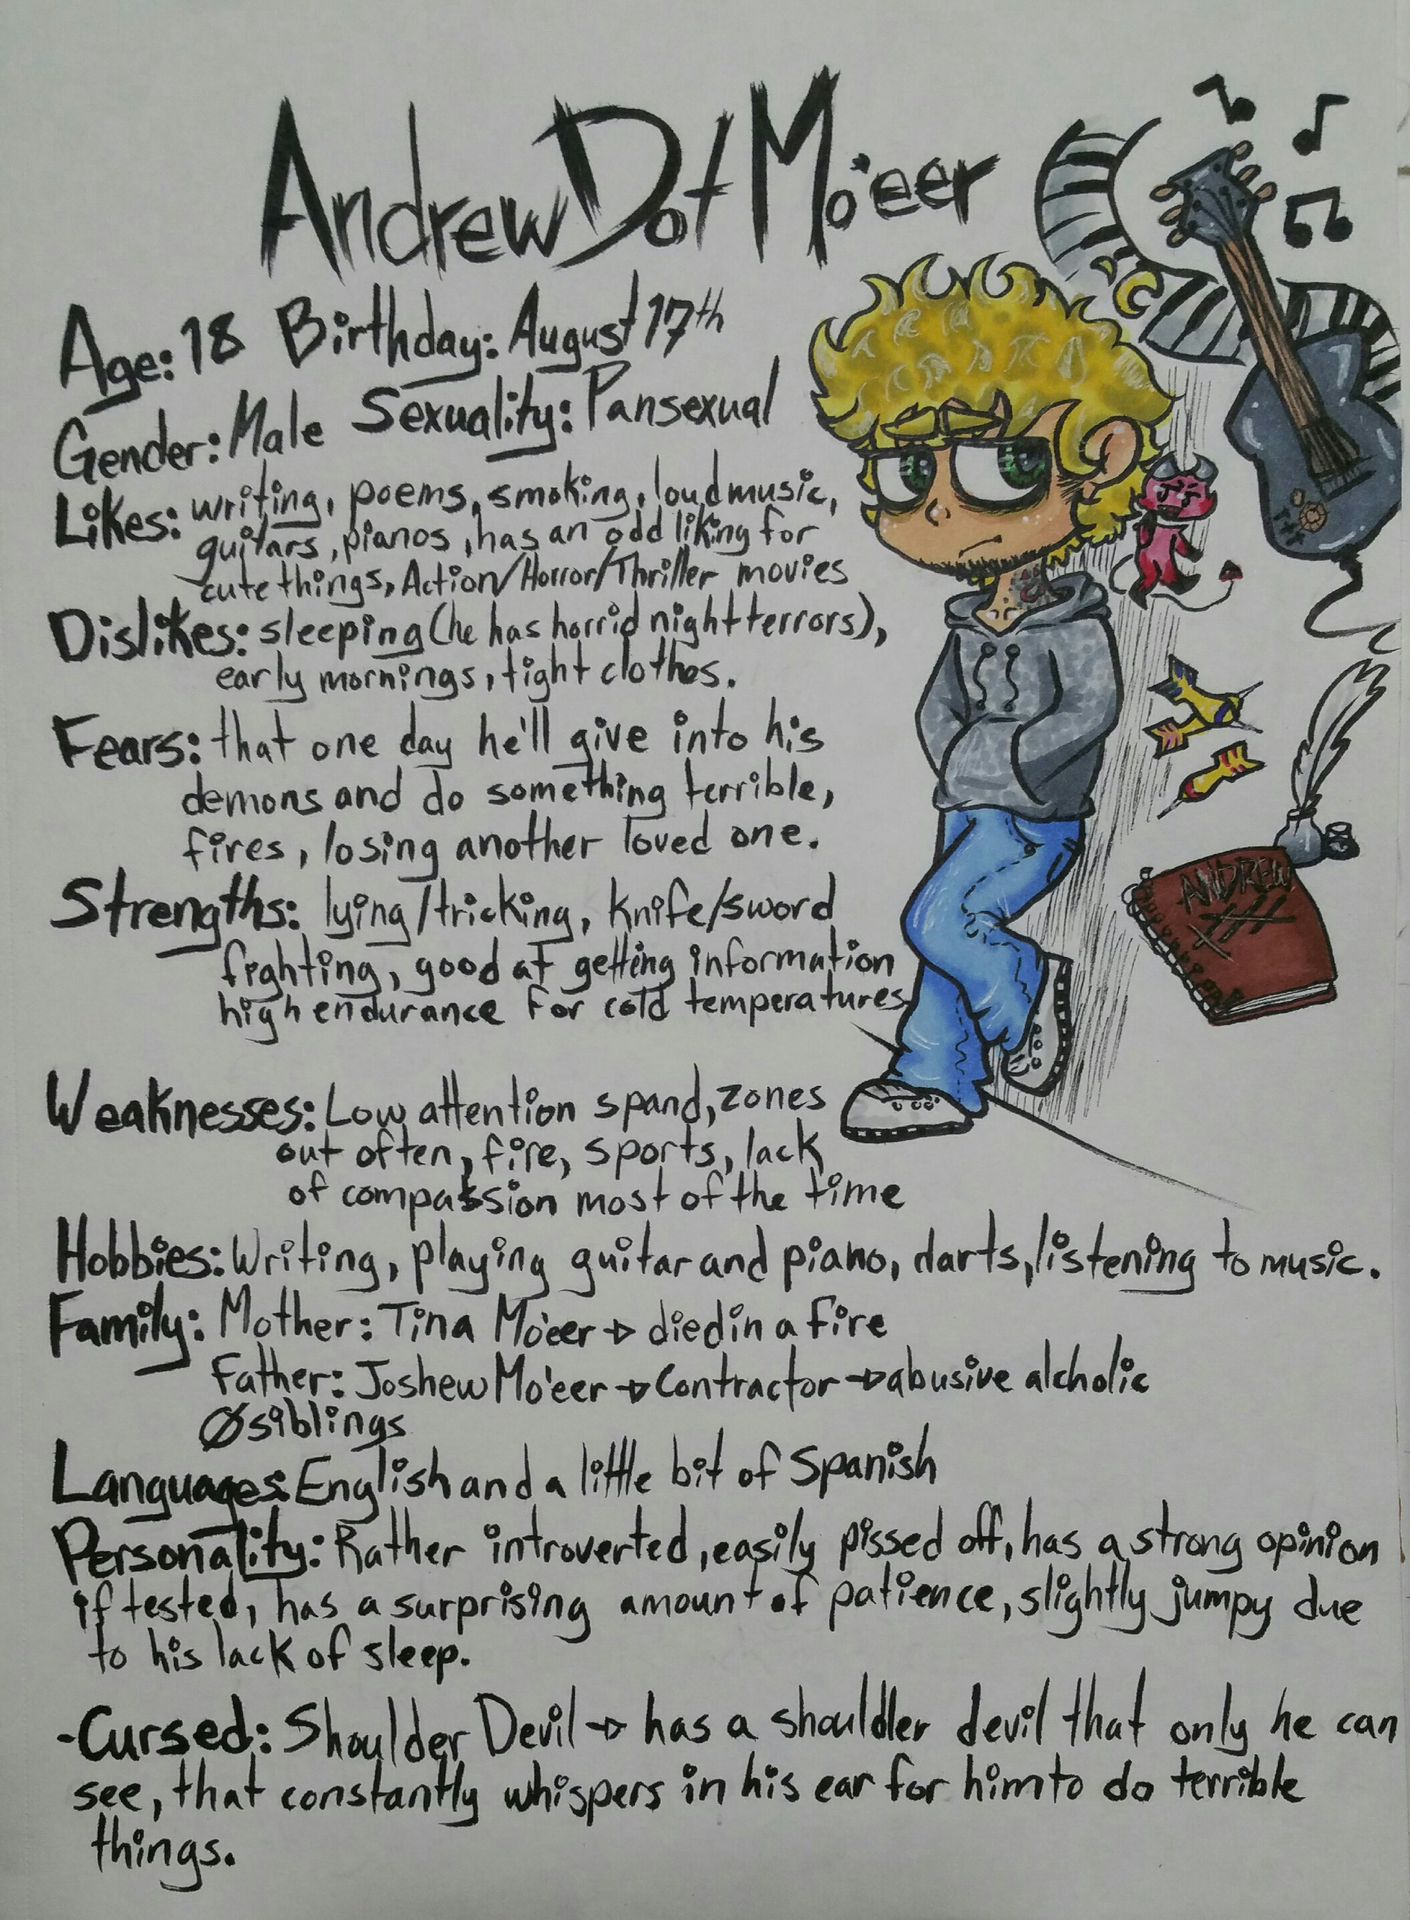 Andrew Dot Mo'eer
Age: 18 Birthday: August 17th
Gender: Male Sexuality: Pansexual
Likes: writing, poems, smoking, loud music,
guitars, pianos, has an odd liking for
cute things, Action/Horror/Thriller movies
Dislikes: sleeping (he has horrid night terrors),
early mornings, tight clothes.
Fears: that one day he'll give into his
demons and do something terrible,
fires, losing another loved one.
Strengths: lying/tricking, knife/sword
fighting, good at getting information
high endurance for cold temperatures
ANDREW
Weaknesses: Low attention spand, zones
out often, fire, sports, lack
of compassion most of the time
Hobbies: Writing, playing guitar and piano, darts, listening to music.
Family: Mother: Tina Mo'eer → died in a fire
Father: Joshew Mo'eer → Contractor → abusive alcholic
Ø siblings
Languages: English and a little bit of Spanish
Personality: Rather introverted, easily pissed off, has a strong opinion
if tested, has a surprising amount of patience, slightly jumpy due
to his lack of sleep.
-Cursed: Shoulder Devil → has a shouldler devil that only he can
see, that constantly whispers in his ear for him to do terrible
things.